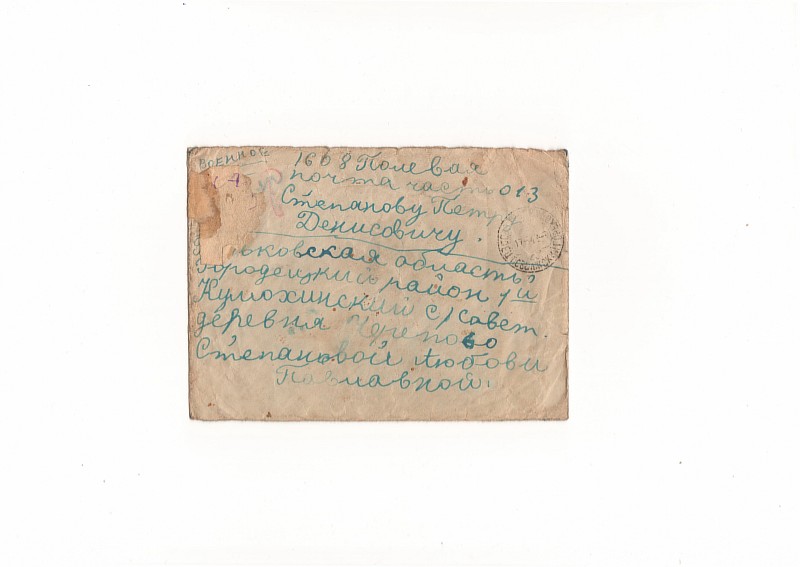 ВОЕННОЕ
1608 Полевая
почта часть 013
Степанову Петру
Денисовичу.
ьковская область
Городецкий район 1й
Кумохинский с/совет.
деревня Черепово
Степановой Любови
Павлавной